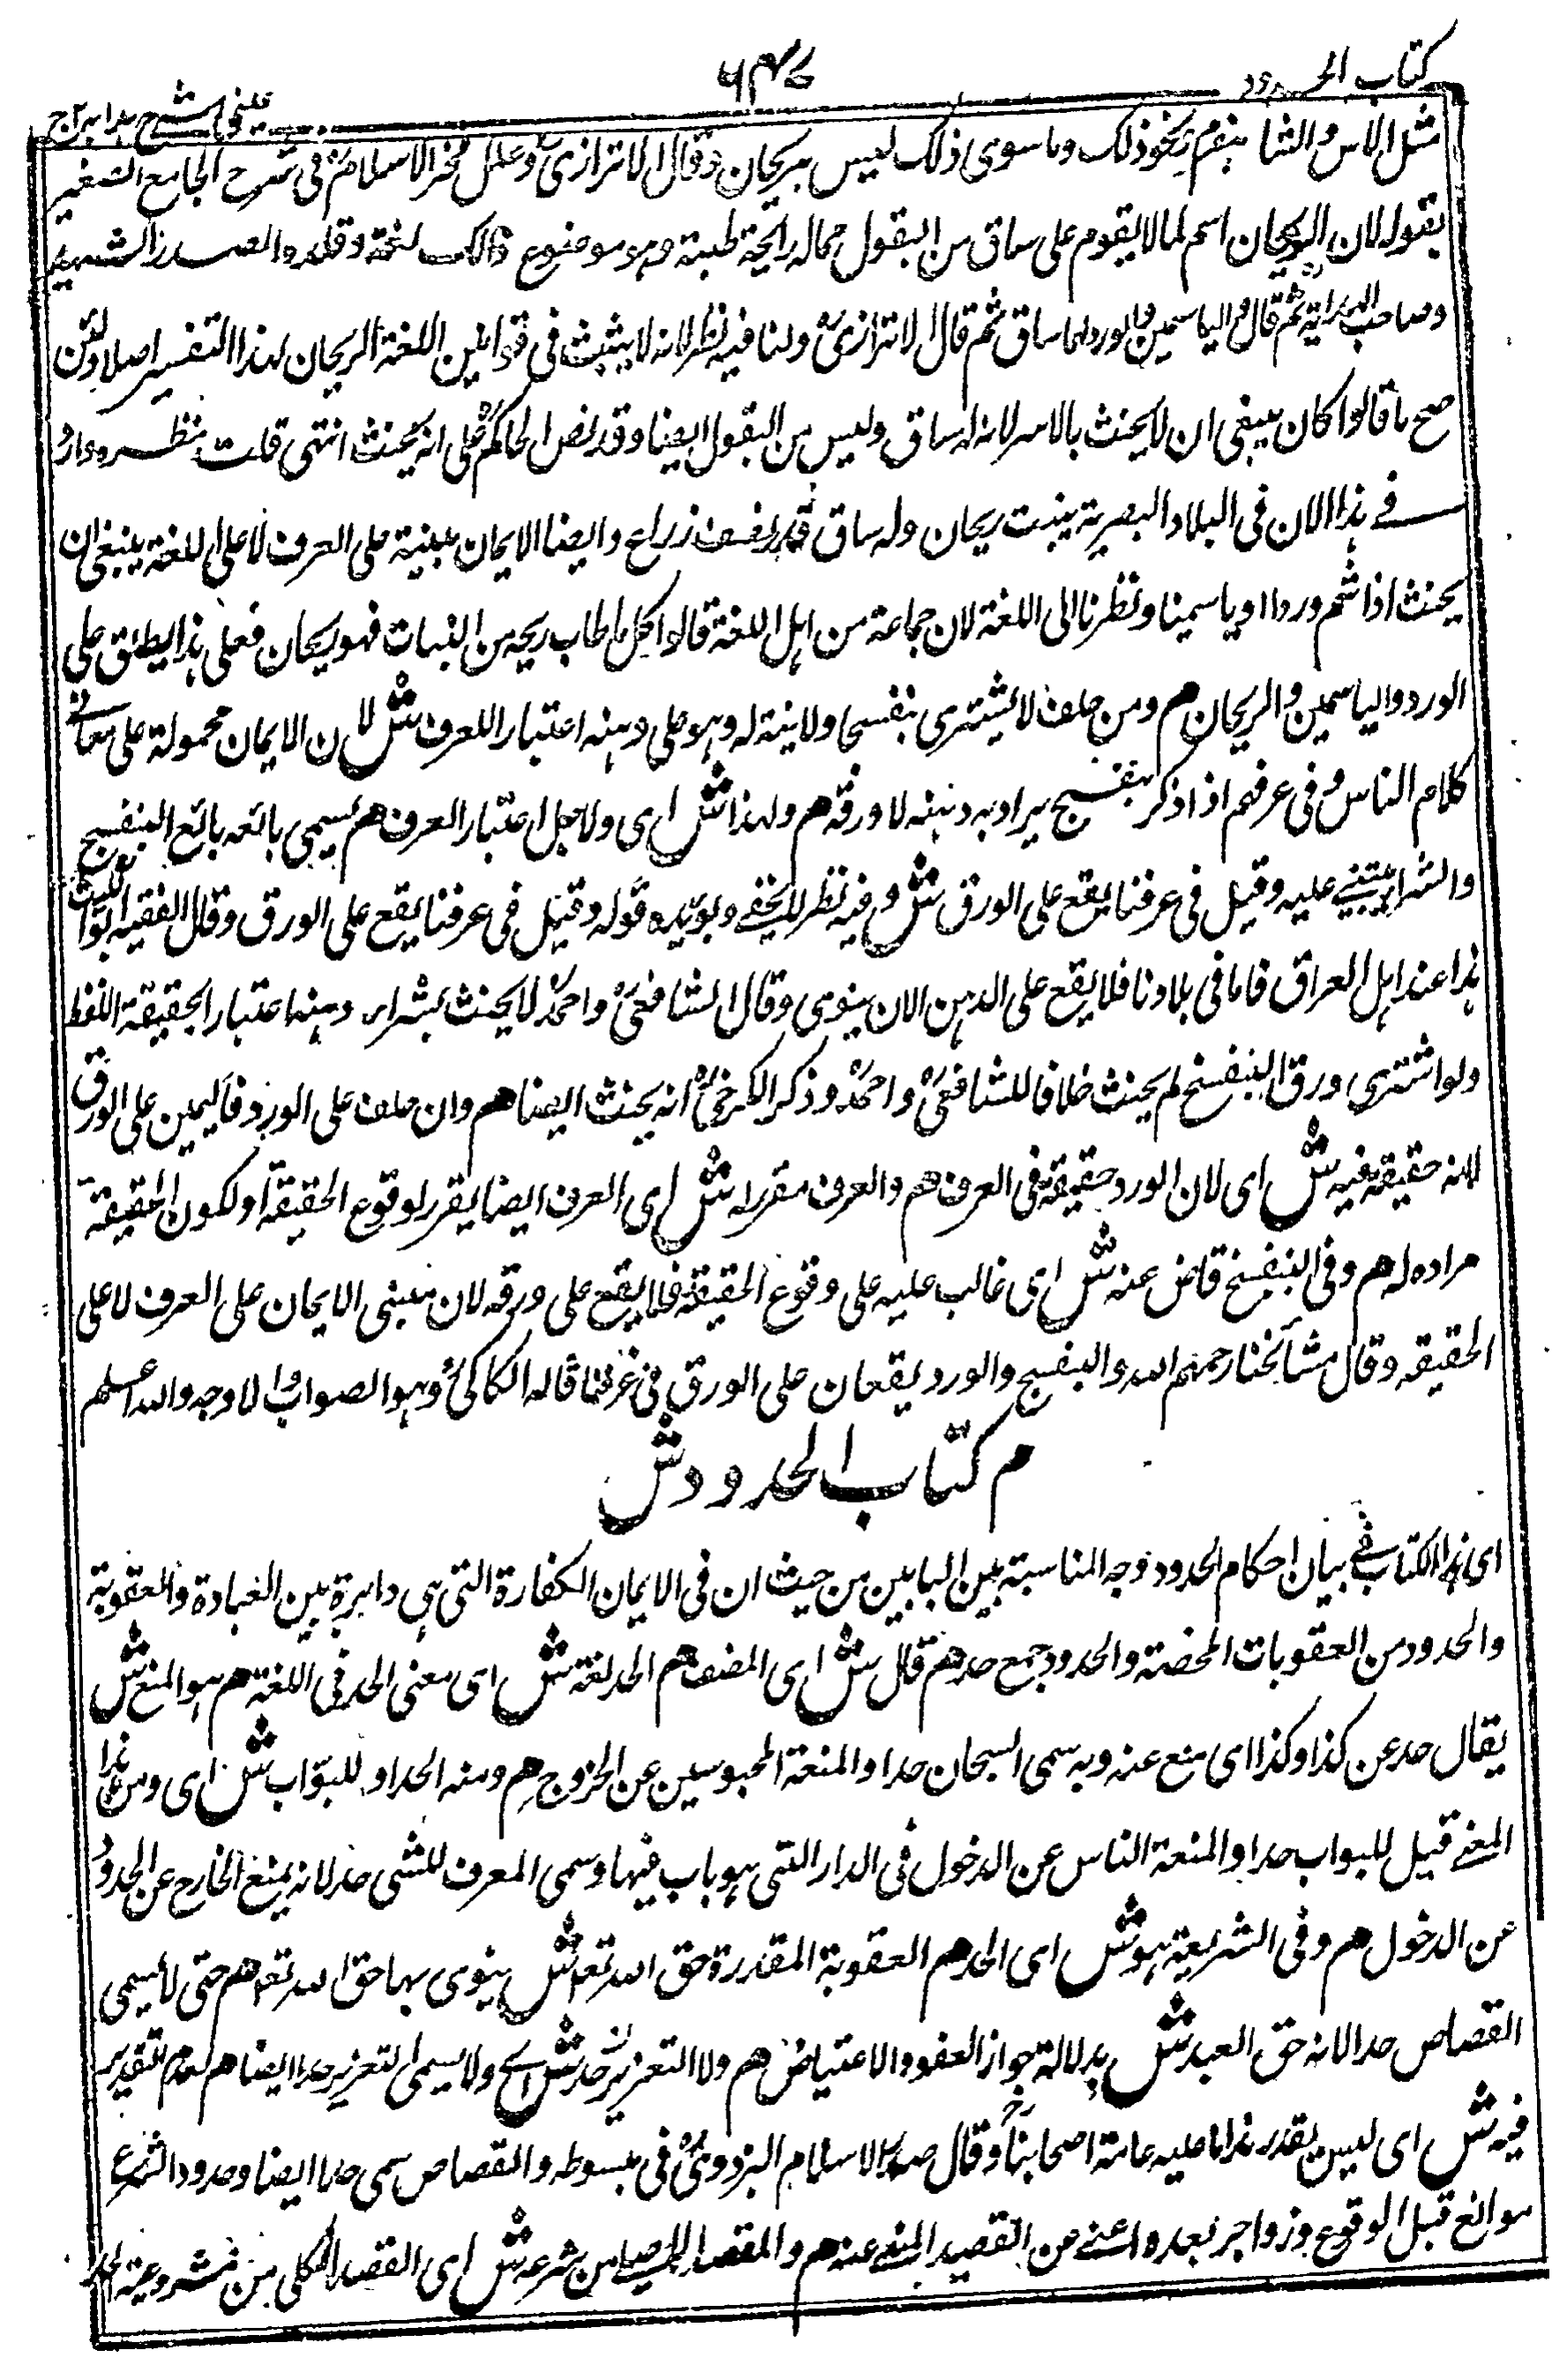 كتاب الحدود
٦٣٧
عينى شرح هدايه ج٢
مثل الاس والشاهسفرم ونحو ذلك وما سوى ذلك ليس بريحان وقال الاترازىؒ وعلل فخر الاسلامؒ فى شرح الجامع الصغير
بقوله لان الريحان اسم لما لا يقوم على ساق من البقول مما له رائحة طيبة وهو موضوع ذلك لغة وقلده الصدر الشهيد
وصاحب الهداية ثم قال والياسمين والورد لهما ساق ثم قال الاترازىؒ ولنا فيه نظر لانه لا يثبت فى قوانين اللغة الريحان لهذا التفسير اصلا ولئن
صح ما قالوا كان ينبغى ان لا يحنث بالاس لانه له ساق وليس من البقول ايضا وقد نص الحاكمؒ على انه يحنث انتهى قلت نظره وارد
فے هذا الان فى البلاد البصرية ينبت ريحان وله ساق قدر نصف ذراع وايضا الايمان مبنية على العرف لا على اللغة ينبغى ان
يحنث اذا شم وردا او ياسمينا ونظرنا الى اللغة لان جماعة من اهل اللغة قالوا كل ما طاب ريحه من النبات فهو ريحان فعلى هذا يطلق على
الورد والياسمين والريحان م ومن حلف لا يشترى بنفسجا ولا نية له وهو على دهنه اعتبارا للعرف ش لان الايمان محمولة على معانى
كلام الناس وفى عرفهم اذا ذكر بنفسج يراد به دهنه لا ورقه هم ولهذا ش اى ولاجل اعتبار العرف هم يسمى بائعه بائع البنفسج
والشراء يبتنى عليه وقيل فى عرفنا يقع على الورق ش وفيه نظر لا يخفى ويؤيده قوله وقيل فى عرفنا يقع على الورق وقال الفقيه ابو الليث
هذا عند اهل العراق فاما فى بلادنا فلا يقع على الدهن الا ان ينوى وقال الشافعىؒ واحمدؒ لا يحنث بشراء دهنه اعتبارا لحقيقة اللفظ
ولو اشترى ورق البنفسج لم يحنث خلافا للشافعىؒ واحمدؒ وذكر الكرخىؒ انه يحنث ايضا هم وان حلف على الورد فاليمين على الورق
لانه حقيقة فيه ش اى لان الورد حقيقة فى العرف هم والعرف مقرر له ش اى العرف ايضا يقرر لوقوع الحقيقة او لكون الحقيقة
مراده له هم وفى البنفسج قاض عنه ش اى غالب عليه على وقوع الحقيقة فلا يقع على ورقه لان مبنى الايمان على العرف لا على
الحقيقه وقال مشائخنا رحمهم الله والبنفسج والورد يقعان على الورق فى عرفنا قاله الكاكىؒ وهو الصواب والاوجه والله اعلم
م كتاب الحدود ش
اى هذا الكتاب فے بيان احكام الحدود وجه المناسبة بين البابين من حيث ان فى الايمان الكفارة التى هى دايرة بين العبادة والعقوبة
والحدود من العقوبات المحضة والحدود جمع حد هم قال ش اى المصنف هم الحد لغة ش اى معنى الحد فى اللغة هم هو المنع ش
يقال حد عن كذا وكذا اى منع عنه وبه سمى السجان حدادا لمنعة المحبوسين عن الخروج هم ومنه الحداد للبوّاب ش اى ومن هذا
المعنے قيل للبواب حدادا لمنعة الناس عن الدخول فى الدار التى هو باب فيها وسمى المعرف للشى حد لانه يمنع الخارج عن الحدود
عن الدخول هم وفى الشريعة هو ش اى الحد هم العقوبة المقدرة حق الله تعا ش ينوى بها حق الله تعا هم حتى لا يسمى
القصاص حدا لانه حق العبد ش بدلالة جواز العفو والاعتياض هم ولا التعزير حد ش اى ولا يسمى التعزير حدا ايضا هم لعدم التقدير
فيه ش اى ليس يقدر هذا ما عليه عامة اصحابناؒ وقال صدر الاسلام البزدوىؒ فى مبسوطه والقصاص سمى حدا ايضا وحدود الشرع
موانع قبل الوقوع وزواجر بعده اعنے من القصد المنع عنه هم والمقصد الاصلے من شرعه ش اى القصد الكلى من مشروعية الحد